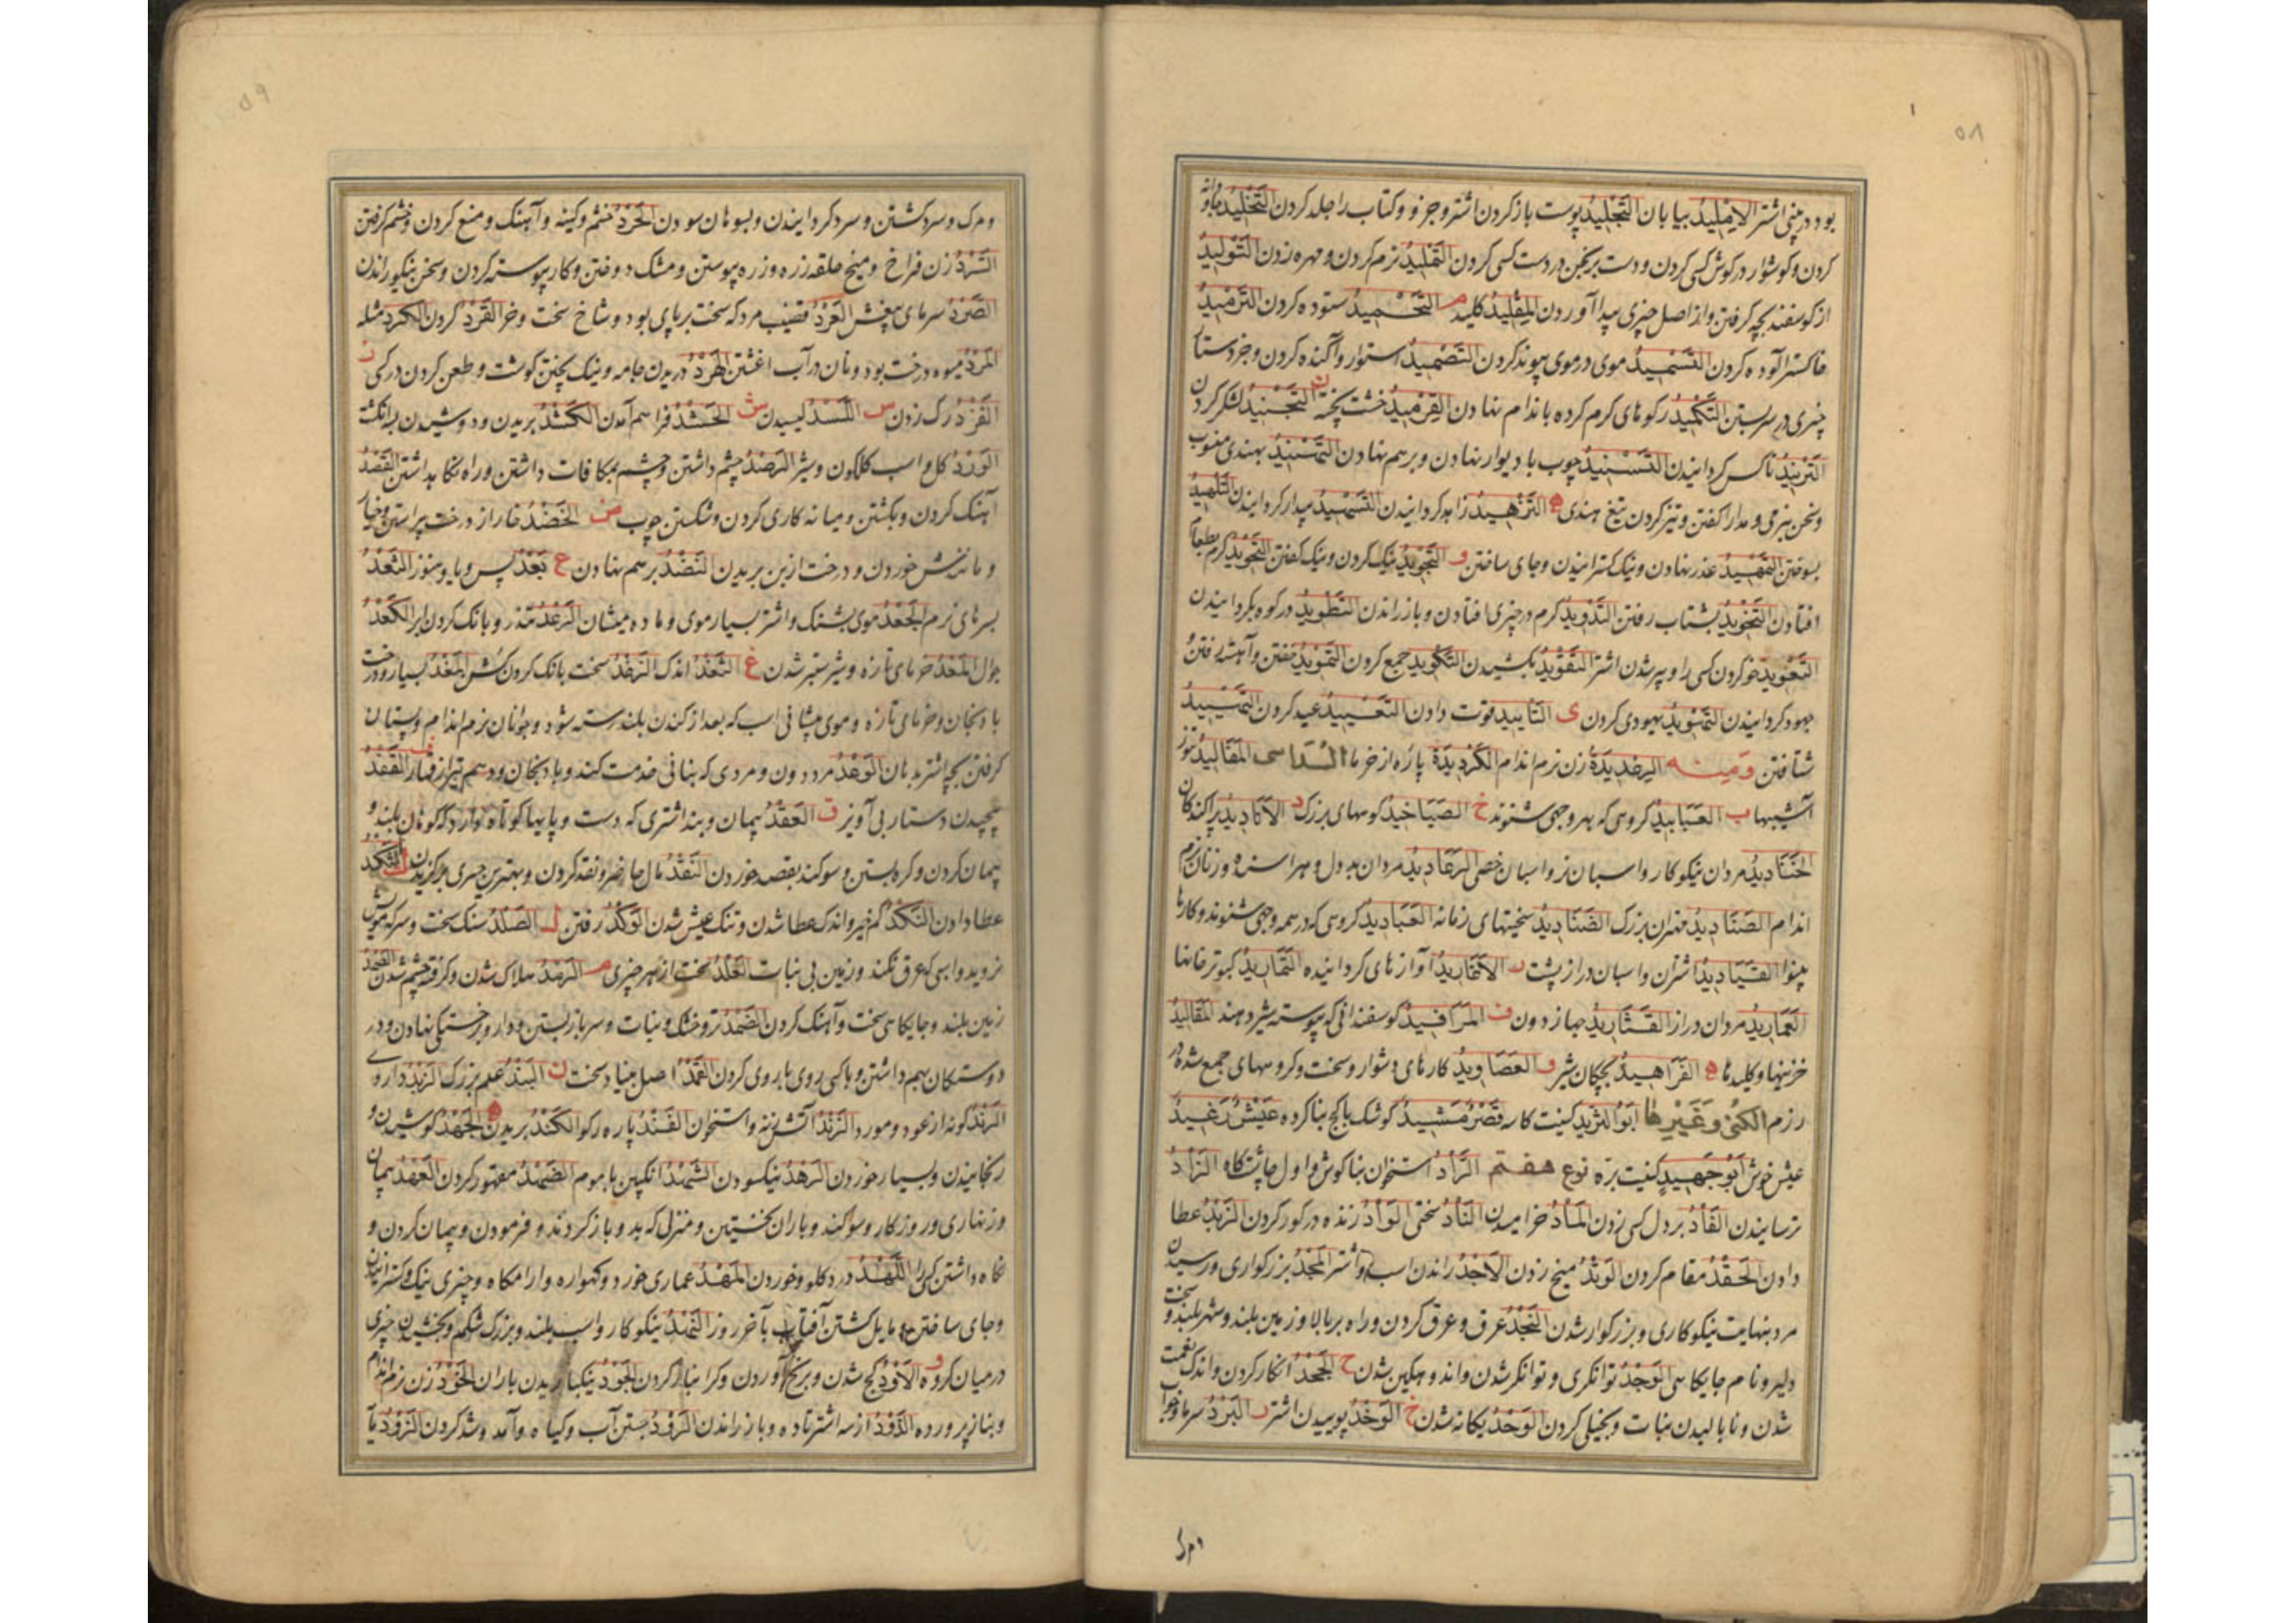 ۵۸
بود در بینی اشتر الامليد بیابان التجليد پوست باز کردن اشتر و جزو و کتاب را جلد کردن التخليد جاودانه
کردن و کوشوار در کوش کسی کردن و دست برنجن در دست کسی کردن التمليد نرم کردن و مهره زدن التوليد
از کوسفند بچه کرفتن و از اصل چیزی پیدا آوردن المقليد کلید م التحميد ستوده کردن الترميد
خاکستر آلوده کردن التسميد موی در موی پیوند کردن التصميد استوار و آکنده کردن و جز دستار
چیزی در سر بستن التكميد رکوهای کرم کرده باندام نهادن القرميد خشت پخته ن التجنيد لشکر کردن
التزنيد ناکس کردانیدن التسنيد چوب با دیوار نهادن و بر هم نهادن التهنيد بهندی منسوب
و سخن بنرمی و مدارا کفتن و تیز کردن تیغ هندی ه التزهيد زاهد کردانیدن التسهيد بیدار کردانیدن التلهيد
بسوختن التمهيد عذر نهادن و نیک کسترانیدن و جای ساختن و التجويد نیک کردن و نیک کفتن
افتادن التخويد بشتاب رفتن التذويد کرم در چیزی افتادن و باز راندن التطويد در کوه بکردانیدن
التعويد خو کردن کسی را و پیر شدن اشتر التقويد بکشیدن التكويد جمع کردن التهويد خفتن و آهسته رفتن و
جهود کردانیدن التهويد یهودی کردن ی التأييد قوت دادن التعييد عید کردن
شتافتن ومنه الرخديدة زن نرم اندام الكرديدة پاره از خرما السداسی المقاليد
ب العبابيد کروهی که بهر وجهی شنوند خ الصياخيد کوههای بزرگ د الاكاديد پراکندکان
الخناديد مردان نیکو کار و اسبان نر و اسبان خصی الرعاديد مردان بد دل و هراسنده و زنان نرم
اندام الصناديد مهتران بزرگ الصناديد سختیهای زمانه العباديد کروهی که در همه وجهی شنوند و کارها
القياديد اشتران و اسبان دراز پشت ر الاغاريد آوازهای کردانیده التماريد کبوتر خانها
العماريد مردان دراز ف المرافيد کوسفندانی که پیوسته شیر دهند المقاليد
خزینها و کلیدها ه الفراهيد بچکان شیر و العصاويد کارهای دشوار و سخت و کروههای جمع شده در
رزم الكنى وغيرها ابو الثريد کنیت کاسه قصر مشيد کوشک باکج بنا کرده عيش رغيد
عیش خوش ابو جهيد کنیت بره نوع هفتم الرأد استخوان بناکوش و اول چاشتگاه الزأد
ترسانیدن الفأد بر دل کسی زدن المأد خرامیدن النأد سختی الوأد زنده در کور کردن الزبد عطا
دادن الحقد مقام کردن الوتد میخ زدن الاجد راندن اسب و اشتر المجد بزرکواری و رسیدن
مرد بنهایت نیکوکاری و بزرکوار شدن النجد عرق و عرق کردن و راه بر بالا و زمین بلند و شهر بلند و سخت
دلیر و نام جایکاهی الوجد توانکری و توانکر شدن و اندوهکین شدن ح الجحد انکار کردن و اندک نعمت
شدن و نابالیدن نبات و بخیلی کردن الوحد یکانه شدن خ الوخد پوییدن اشتر ر البرد سرما و خواب
ومرک
۵۹
و مرک و سرد کشتن و سرد کردانیدن و بسوهان سودن الحرد خشم و کینه و آهنک و منع کردن و خشم کرفتن
السرد زن فراخ و میخ حلقه زره و زره پیوستن و مشک دوختن و کار پیوسته کردن و سخن نیکو راندن
الصرد سرمای العرد قضیب مرد که سخت بر پای بود و شاخ سخت و خر القرد کردن الكرد مثله
المرد میوه درخت بود و نان در آب اغشتن الهرد دریدن جامه و نیک پختن کوشت و طعن کردن در کسی ز
الفزد رک زدن س اللسد لیسیدن ش الحشد فراهم آمدن الكشد بریدن و دوشیدن بسه انکشت
الورد کل و اسب کلکون و شیر الرصد چشم داشتن و چشم بمکافات داشتن و راه نکاه داشتن القصد
آهنک کردن و بکشتن و میانه کاری کردن و شکستن چوب ض الخضد خار از درخت پیراستن و خیار
و مانندش خوردن و درخت از بن بریدن النضد بر هم نهادن ع بعد پس و با و هنوز الثعد
بسرهای نرم الجعد موی بشنک و اشتر بسیار موی و ماده میشان الرعد تندر و بانک کردن ابر الكعد
جوال المعد خرمای تازه و شیر ستبر شدن غ الثغد اندک الرغد سخت بانک کردن المغد بسیار و درخت
بادنجان و خرمای تازه و موی پیشانی اسب که بعد از کندن بلند رسته شود و جوانان نرم اندام و پستان
کرفتن بچه اشتر بدهان الوغد مرد دون و مردی که بنانی خدمت کند و بادنجان و سهم تیر از قمار القفد
پیچیدن دستار بی آویز ق العقد پیمان و بند اشتری که دست و پایها کوتاه دارد که کوهان بلند و
پیمان کردن و کره بستن و سوکند بقصد خوردن النقد مال حاضر و نقد کردن و بهترین چیزی برکزیدن الشكد
عطا دادن النكد کم خیر و اندک عطا شدن و تنک عیش شدن الوكد رفتن ل الصلد سنک سخت و سر که مویش
نروید و اسبی که عرق نکند و زمین بی نبات العلد سخت از هر چیزی م الرمد هلاک شدن و کرفته چشم شدن الصمد
زمین بلند و جایکاهی سخت و آهنک کردن الضمد تر و خشک و نبات و سر باز بستن و دارو بر خستکی نهادن و در
دوستکان بهم داشتن و با کسی روی با روی کردن العمد اصل بنیاد سخت ن البند علم بزرک الرند داروی
الرند کونه از عود و مورد الزند آتش زنه و استخوان الفند پاره کوه الكند بریدن ه الجهد کوشیدن و
رنجانیدن و بسیار خوردن الرهد نیکسودن الشهد انکبین با موم الضهد مقهور کردن العهد پیمان
و زنهاری و روزکار و سوکند و باران نخستین و منزلی که بدو باز کردند و فرمودن و پیمان کردن و
نکاه داشتن کسی را اللهد درد کلو و خوردن المهد عماری خورد و کهواره و ارامکاه و چیزی نیک و کسترانیدن
و جای ساختن و مایل کشتن آفتاب بآخر روز النهد نیکوکار و اسب بلند و بزرک شکم و بخشیدن چیزی
در میان کروه و الاود کج شدن و برنج آوردن و کرانبار کردن الجود نیکبار یدن باران الخود زن نرم اندام
و بناز پرورده الذود از سه اشتر تا ده و باز راندن الرود جستن آب و کیاه و آمد و شد کردن الزود یا